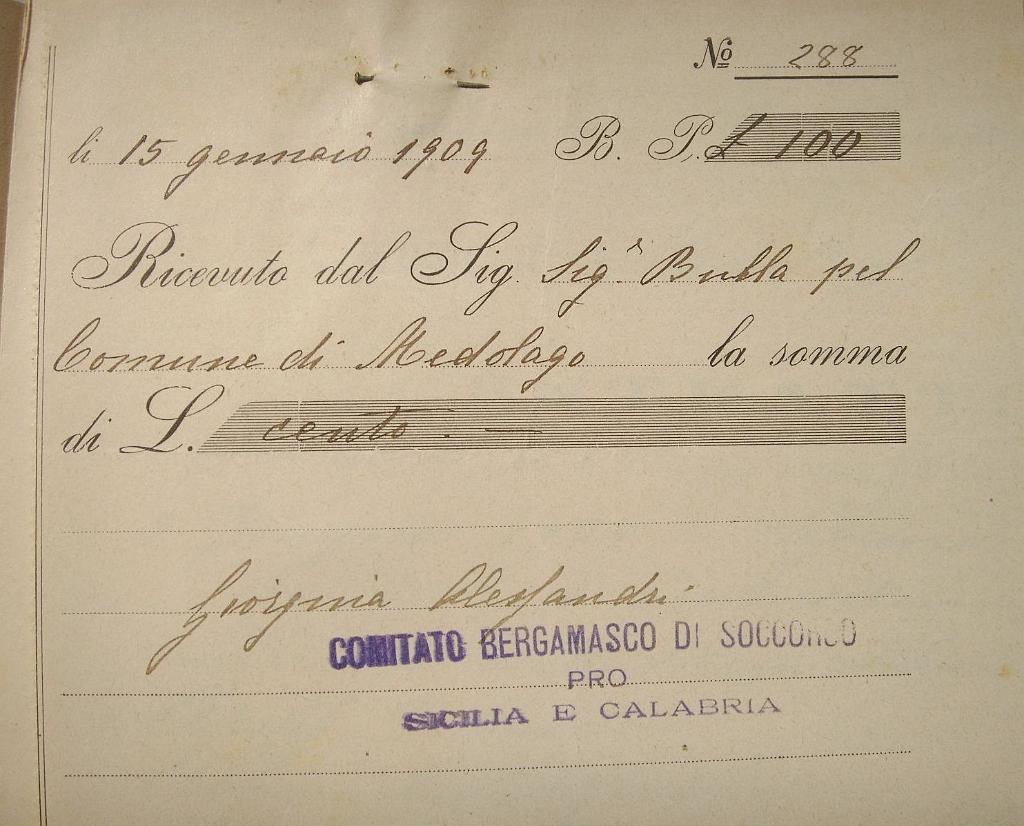 № 288
li 15 gennaio 1909 B. P. £ 100
Ricevuto dal Sig. Sig.r Bulla pel
Comune di Medolago la somma
di L. cento. —
Alessandri
COMITATO BERGAMASCO DI SOCCORSO
PRO
SICILIA E CALABRIA